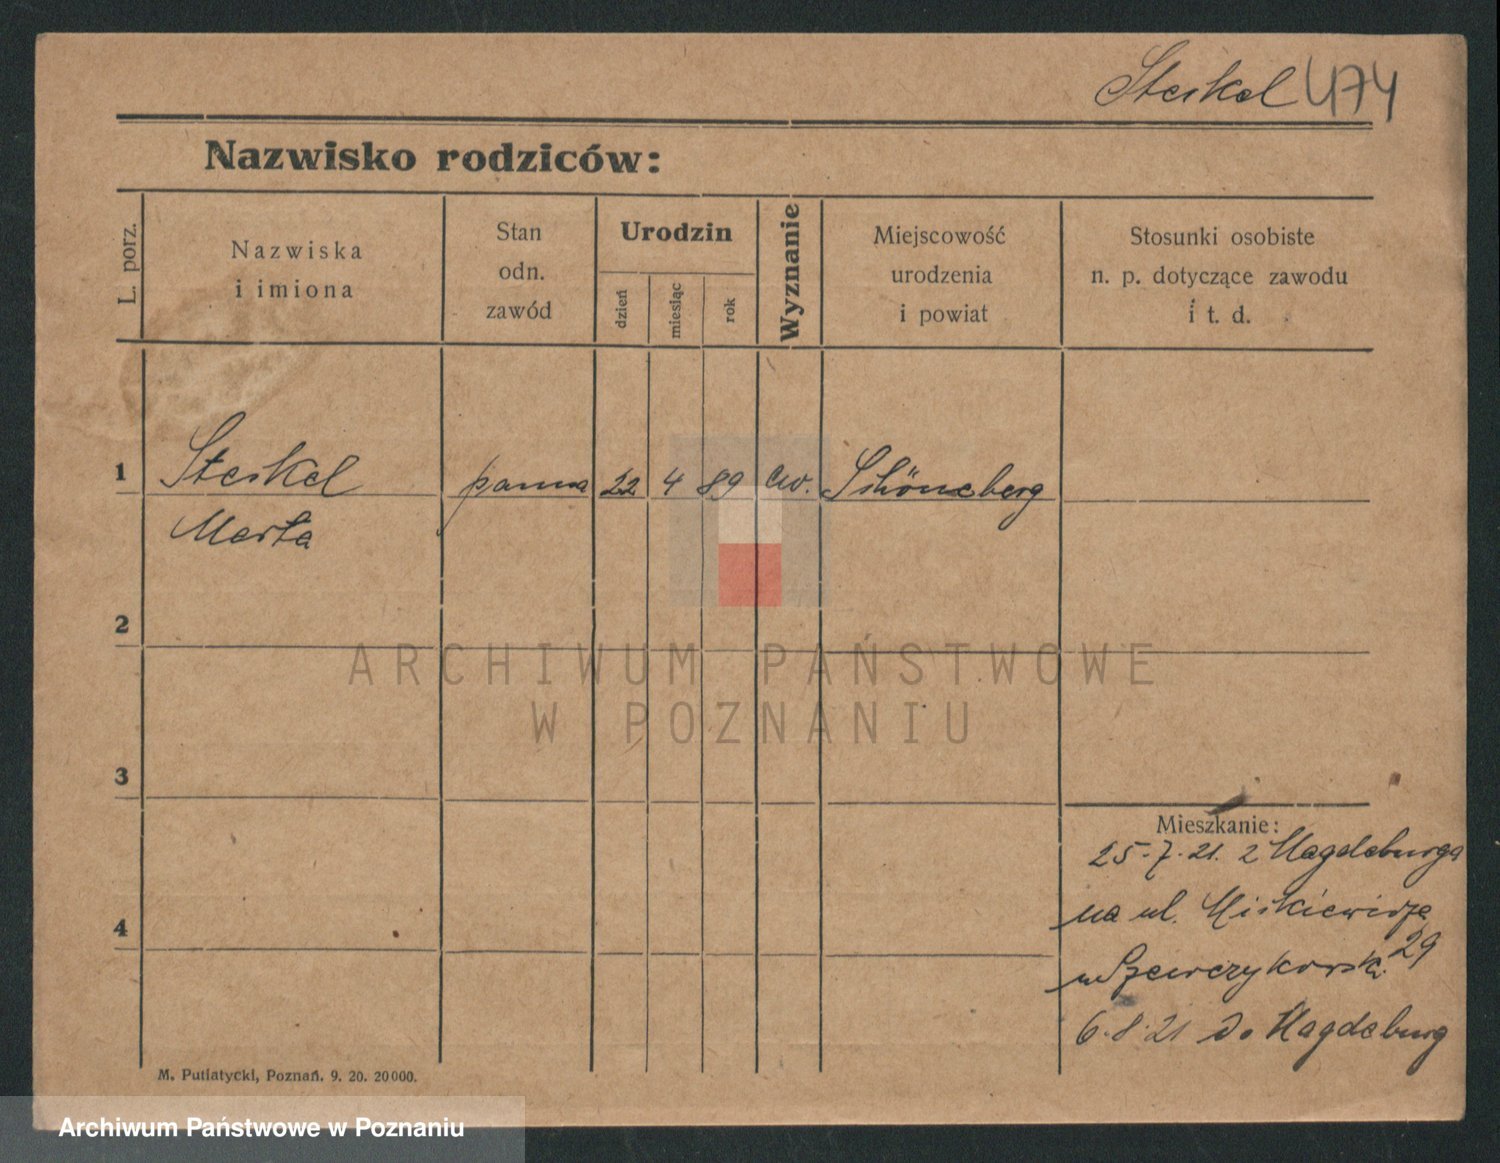 Steikel 474
Nazwisko rodziców:
L. porz.
Nazwiska
i imiona
Stan
odn.
zawód
Urodzin
dzień
miesiąc
rok
Wyznanie
Miejscowość
urodzenia
i powiat
Stosunki osobiste
n. p. dotyczące zawodu
i t. d.
1 Steikel panna 22 4 89 ew. Schöneberg
Marta
2
3
4
Mieszkanie:
25-7-21. z Magdeburga
na ul. Mickiewicza
29
u Szewczykowski
6.8.21 do Magdeburg
M. Putiatycki, Poznań. 9. 20. 20000.
ARCHIWUM PAŃSTWOWE
W POZNANIU
Archiwum Państwowe w Poznaniu